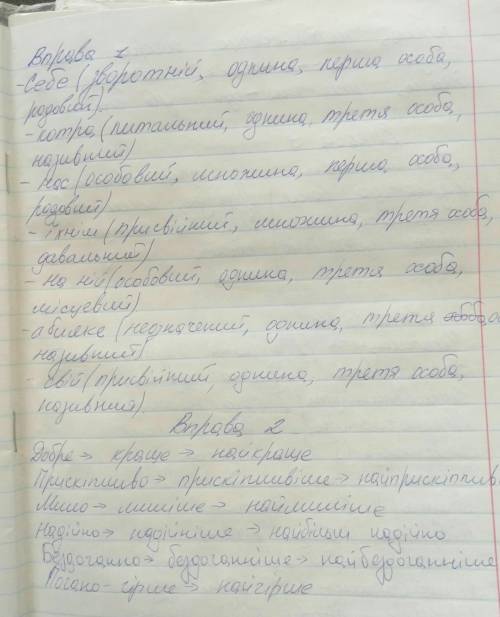 Вправа 1
-Себе (зворотній, однина, перша особа,
родовий).
-котра (питальний, однина, третя особа,
називний)
- нас (особовий, множина, перша особа,
родовий)
- їхнім (присвійний, множина, третя особа,
давальний)
- на ній (особовий, однина, третя особа,
місцевий)
-абияке (незначений, однина, третя
називний)
- свій (присвійний, однина, третя особа,
називний).
Вправа 2
Добре → краще → найкраще
Прискіпливо → прискіпливіше → найприскіпливі
Мило → миліше → наймиліше
Надійно → надійніше → найбільш надійно
Бездоганно → бездоганніше → найбездоганніше
Погано - гірше → найгірше